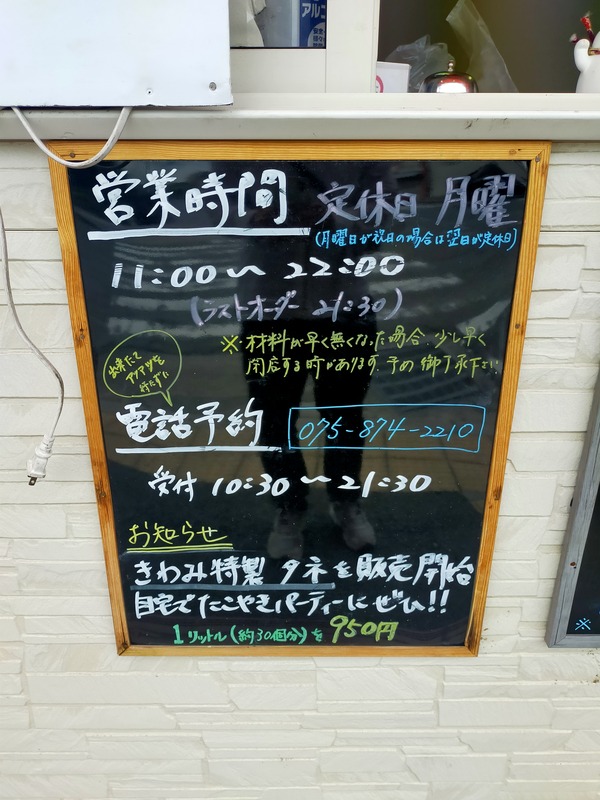 アルコ
営業時間 定休日 月曜
(月曜日が祝日の場合は翌日が定休日)
11:00〜22:00
(ラストオーダー 21:30)
※材料が早く無くなった場合、少し早く
閉店する時があります。予め御了承下さい
出来たて
アツアツを
行たずに
電話予約 075-874-2210
受付 10:30〜21:30
お知らせ
きわみ特製 タネを販売開始
自宅でたこやきパーティーにぜひ!!
1リットル(約30個分)を950円
※